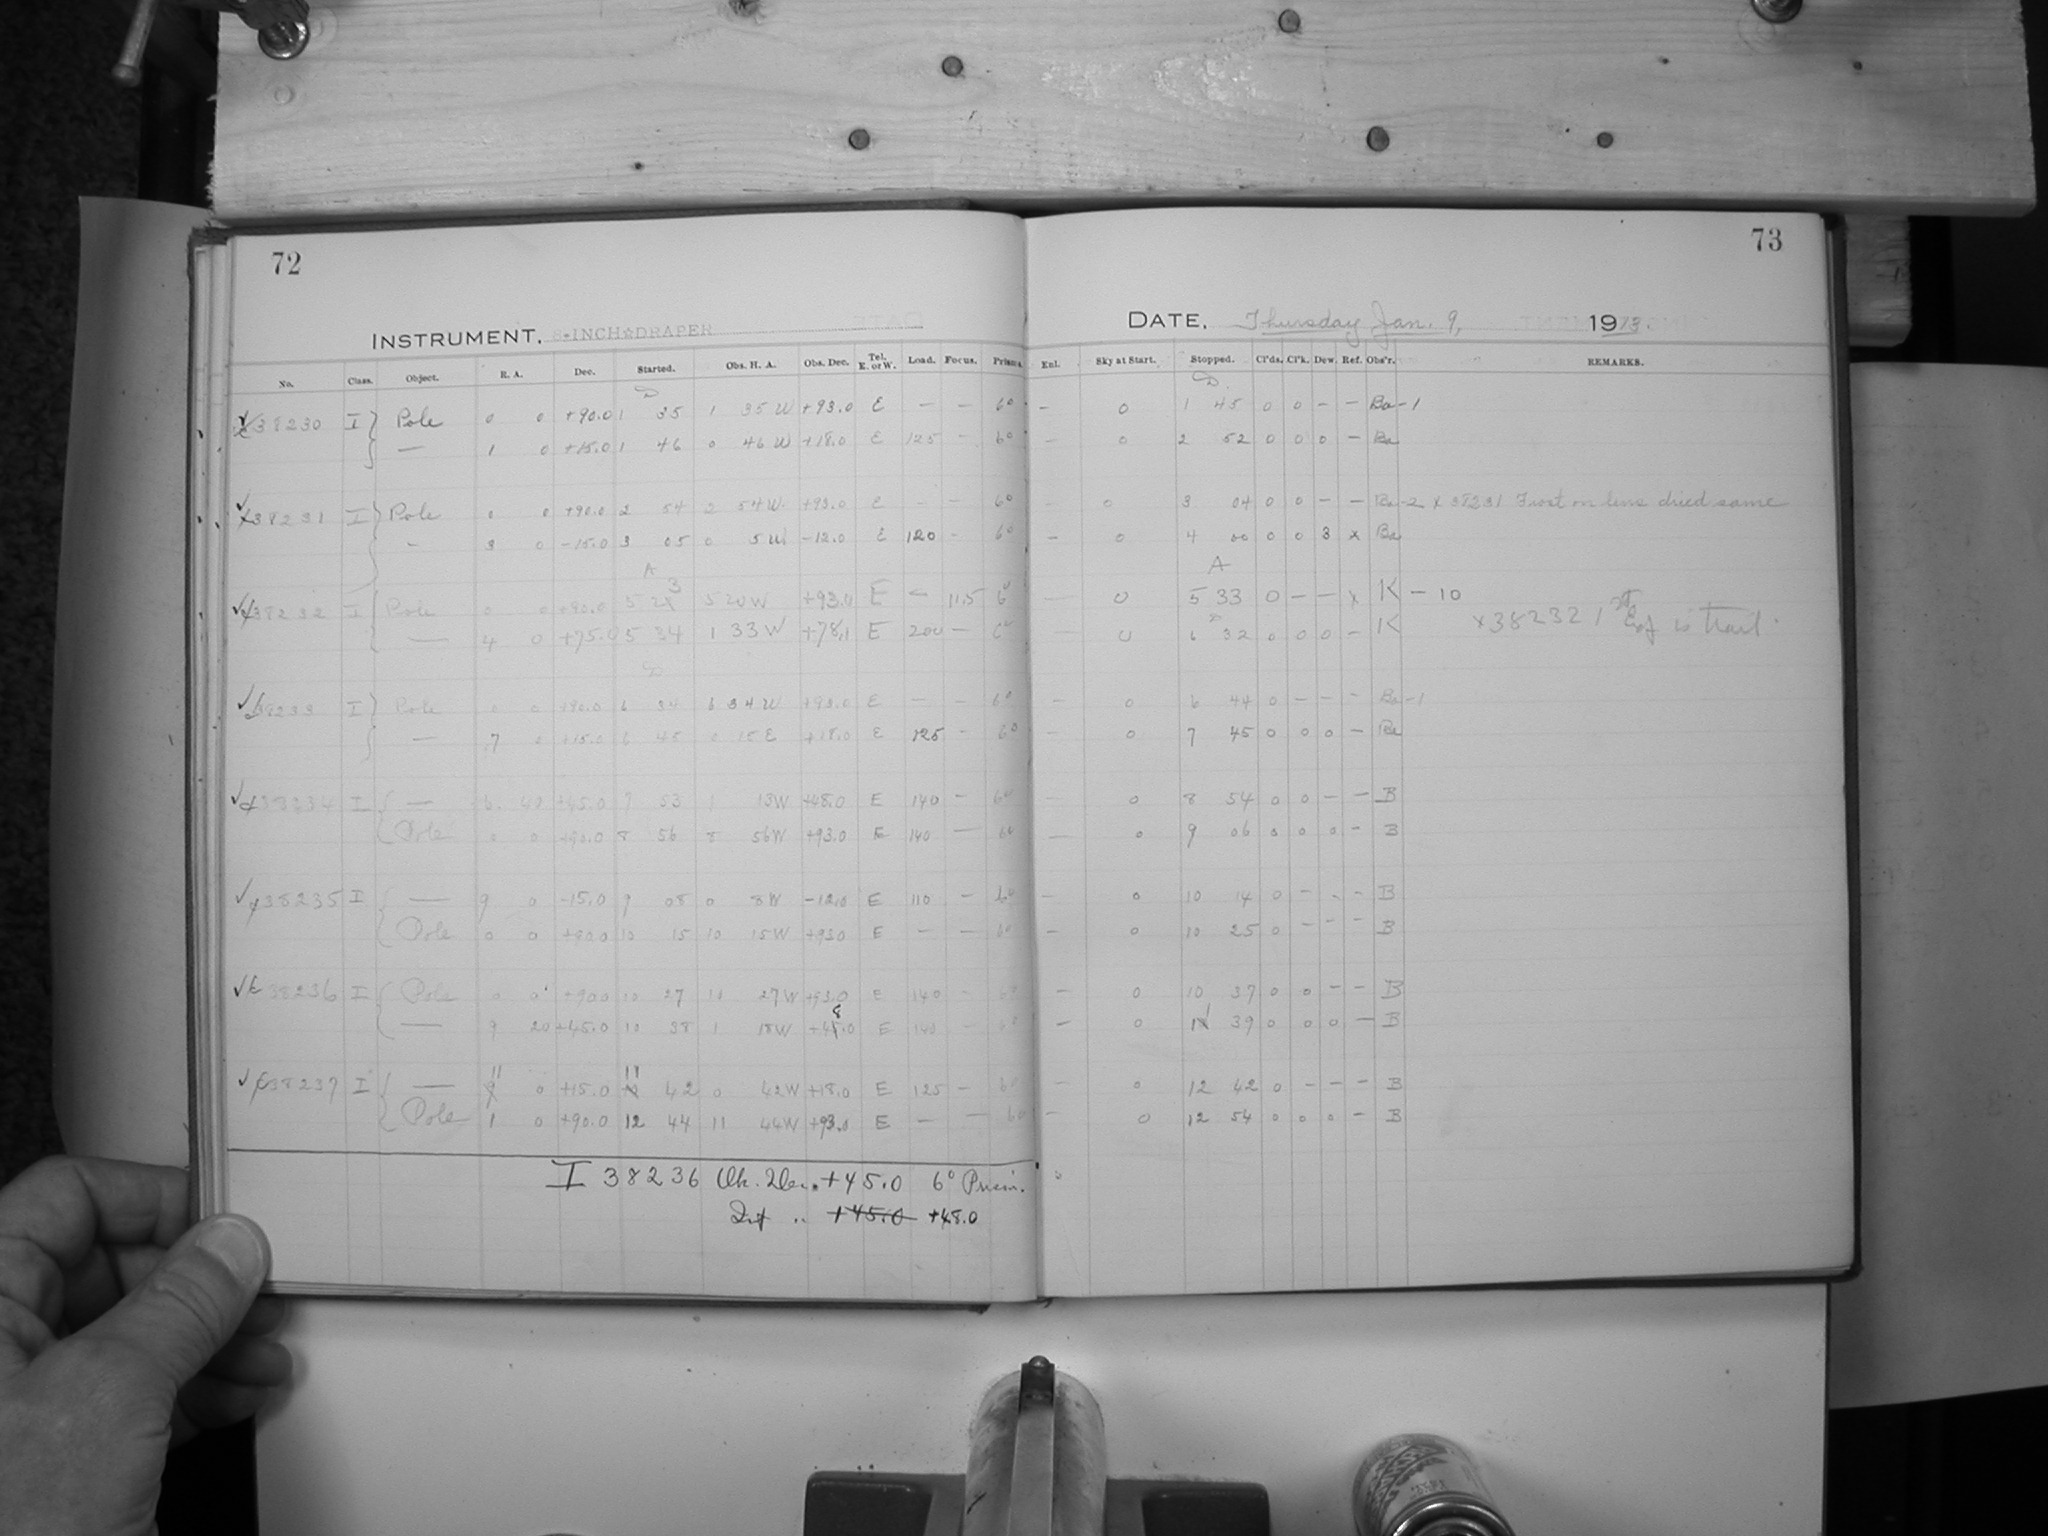 72
INSTRUMENT, 8-INCH DRAPER
No. Class. Object. R. A. Dec. Started. Obs. H. A. Obs. Dec. Tel. E. or W. Load. Focus. Prisms.
D
38230 I Pole 0 0 +90.0 1 35 1 35 W +93.0 E — — 6°
— 1 0 +15.0 1 46 0 46 W +18.0 E 125 - 6°
38231 I Pole 0 0 +90.0 2 54 2 54 W +93.0 E - - 6°
- 3 0 -15.0 3 05 0 5 W -12.0 E 120 - 6°
A
38232 I Pole 0 0 +90.0 5 23 5 20 W +93.0 E — 11.5 6°
— 4 0 +75.0 5 34 1 33 W +78.1 E 200 — 6°
D
38233 I Pole 0 0 +90.0 6 34 6 34 W +93.0 E — — 6°
— 7 0 +15.0 6 45 0 15 E +18.0 E 125 - 6°
38234 I — 6 40 +45.0 7 53 1 13 W +48.0 E 140 - 6°
Pole 0 0 +90.0 8 56 8 56 W +93.0 E 140 — 6°
38235 I — 9 0 -15.0 9 08 0 8 W -12.0 E 110 - 6°
Pole 0 0 +90.0 10 15 10 15 W +93.0 E — — 6°
38236 I Pole 0 0 +90.0 10 27 10 27 W +93.0 E 140 - 6°
— 9 20 +45.0 10 38 1 18 W +48.0 E 140 - 6°
38237 I — 11 0 +15.0 11 42 0 42 W +18.0 E 125 - 6°
Pole 1 0 +90.0 12 44 11 44 W +93.0 E — — 6°
I 38236 Ok. Dec. +45.0 6° Prism.
.. +45.0 +48.0
73
DATE, Thursday Jan. 9, 1913.
Enl. Sky at Start. Stopped. Cl'ds. Cl'k. Dew. Ref. Obs'r. REMARKS.
D
- 0 1 45 0 0 - - Ba-1
- 0 2 52 0 0 0 - Ba
- 0 3 04 0 0 - - Ba-2 x 38231 Frost on lens dried same
- 0 4 00 0 0 3 x Ba
A
— 0 5 33 0 - - x K - 10
- 0 6 32 0 0 0 - K x38232 1st Exp is trail.
- 0 6 44 0 - - - Ba-1
- 0 7 45 0 0 0 - Ba
- 0 8 54 0 0 - - B
- 0 9 06 0 0 0 - B
- 0 10 14 0 - - - B
- 0 10 25 0 - - - B
- 0 10 37 0 0 - - B
- 0 11 39 0 0 0 - B
- 0 12 42 0 - - - B
- 0 12 54 0 0 0 - B